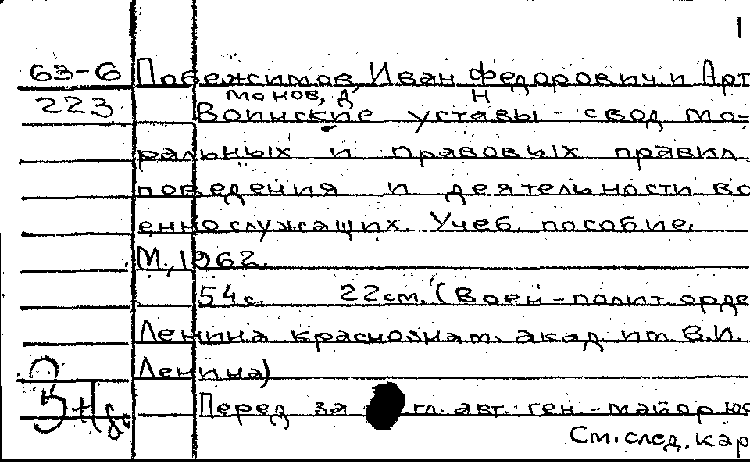 1
63-6 Победимов, Иван Федорович и Арт
монов, Д. Н
223 Воинские уставы - свод мо-
ральных и правовых правил
поведения и деятельности во
еннослужащих. Учеб. пособие.
М., 1962.
54 с. 22 см. (Воен-полит. орде
Ленина краснознам. акад им. В.И.
Ленина)
Перед за гл. авт. ген.-майор юс
См. след. кар